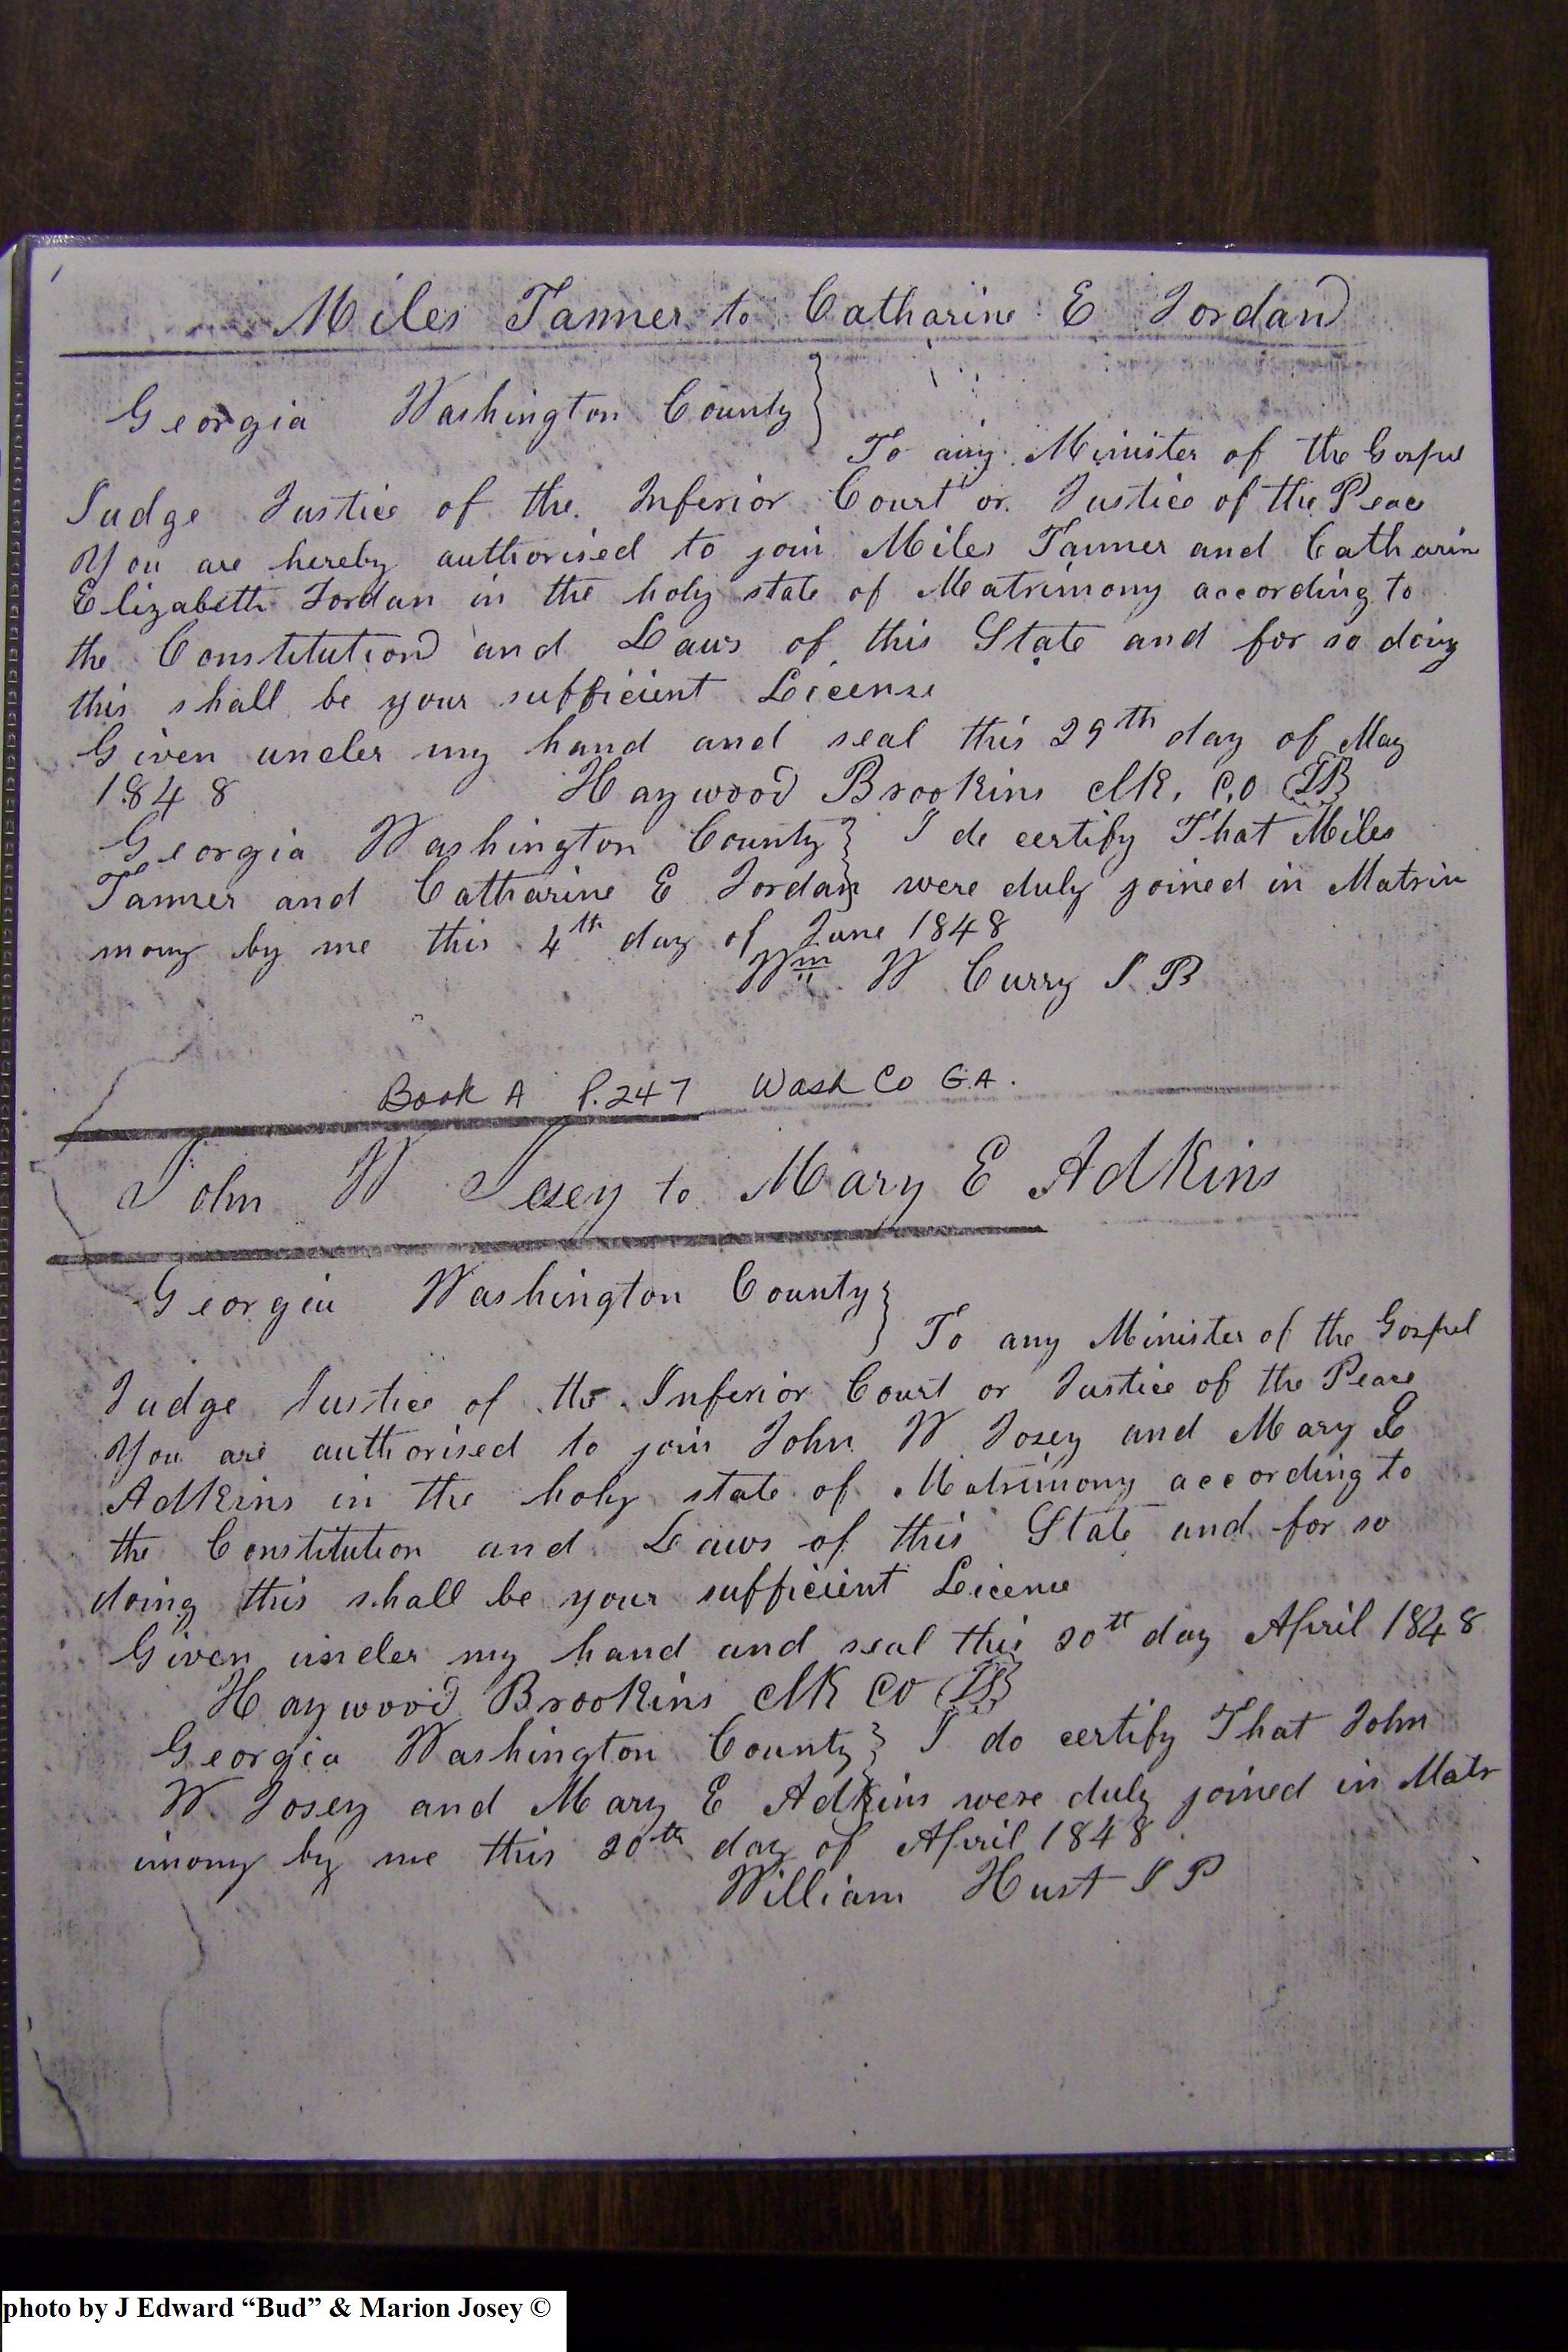 Miles Tanner to Catharine E Jordan
Georgia Washington County }
To any Minister of the Gospel
Judge Justice of the Inferior Court or Justice of the Peace
You are hereby authorised to join Miles Tanner and Catharine
Elizabeth Jordan in the holy state of Matrimony according to
the Constitution and Laws of this State and for so doing
this shall be your sufficient License
Given under my hand and seal this 29th day of May
1848 Haywood Brookins clk, C,O
Georgia Washington County } I do certify That Miles
Tanner and Catharine E Jordan were duly joined in Matrim
mony by me this 4th day of June 1848
Wm W Curry
Book A P.247 Wash Co GA.
John W Josey to Mary E Adkins
Georgia Washington County }
To any Minister of the Gospel
Judge Justice of the Inferior Court or Justice of the Peace
You are authorised to join John W Josey and Mary E
Adkins in the holy state of Matrimony according to
the Constitution and Laws of this State and for so
doing this shall be your sufficient License
Given under my hand and seal this 20th day April 1848
Haywood Brookins clk CO
Georgia Washington County } I do certify That John
W Josey and Mary E Adkins were duly joined in Matr
imony by me this 20th day of April 1848
William Hust J P
photo by J Edward “Bud” & Marion Josey ©